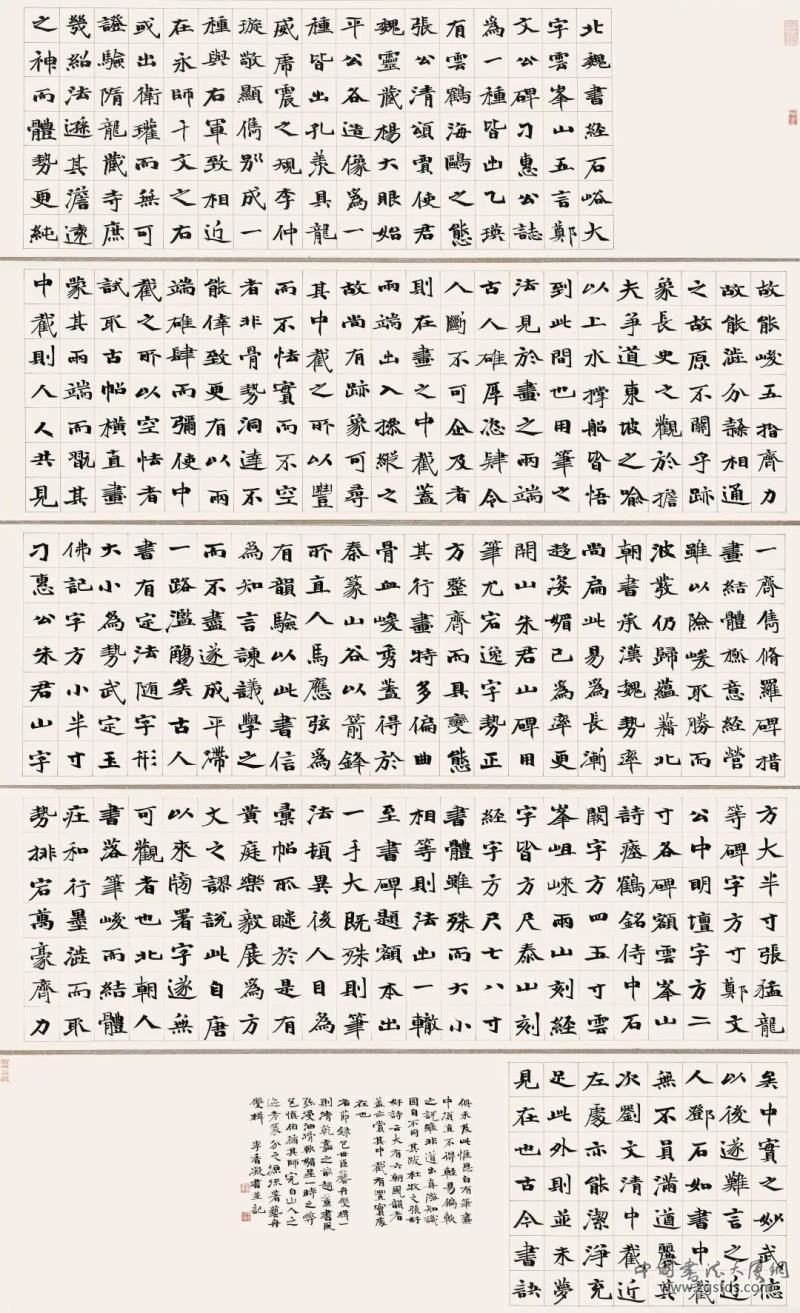 北魏書經石峪大
字雲峯山五言鄭
文公碑刁惠公誌
為一種皆出乙瑛
有雲鶴海鷗之態
張公清頌賈使君
魏靈藏楊大眼始
平公各造像為一
種皆出孔羨具龍
威虎震之規李仲
璇敬顯儁別成一
種與右軍致相近
在永師千文之右
或出衛瓘而無可
證驗隋龍藏寺庶
幾紹法遜其澹遠
之神而體勢更純
故能峻五指齊力
故能澁分隸相通
之故原不關乎跡
象長史之觀於擔
夫爭道東坡之喻
以上水撐船皆悟
到此間也用筆之
法見於畫之兩端
古人雄厚恣肆令
人斷不可企及者
則在畫之中截蓋
兩端出入操縱之
故尚有跡象可尋
其中截之所以豐
而不怯實而不空
者非骨勢洞達不
能倖致更有以兩
端雄肆而彌使中
截之所以空怯者
試取古帖橫直畫
蒙其兩端而翫其
中截則人人共見
一齊儁脩羅碑措
畫結體極意經營
雖以險峻取勝而
波發仍歸蘊藉北
朝書承漢魏勢率
尚扁此易為長漸
趍姿媚已為率更
開山朱君山碑用
筆尤宕逸字勢正
方整齊而具變態
其行畫特多偏曲
骨血峻秀蓋得於
秦篆山谷以箭鋒
所直人馬應弦為
有韻驗以此書信
為知言諫議學之
而不盡遂成平滯
一路濫觴矣古人
書有定法隨字形
大小為勢武定玉
佛記字方小半寸
刁惠公朱君山字
方大半寸張猛龍
等碑字方寸鄭文
公中明壇字方二
寸各碑額雲峯山
詩瘞鶴銘侍中石
闕字方四五寸雲
峯岨崍兩山刻經
字皆方尺泰山刻
經字方尺七八寸
書體雖殊而大小
相等則法出一轍
至書碑題額本出
一手大既殊則筆
法頓異後人目為
彙帖所瞇於是有
黃庭樂毅展為方
文之謬說此自唐
以來牓署字遂無
可觀者也北朝人
書落筆峻而結體
莊和行墨澁而取
勢排宕萬豪齊力
矣中實之妙武德
以後遂難言之近
人鄧石如書中截
無不員滿遒麗其
次劉文清中截近
左處亦能潔淨充
足此外則並未夢
見在也古今書訣
俱未及此惟思白有筆畫
中須直不得輕易偏軟
之說雖非道出真際知識
固自不同其跋杜牧之張好
好詩云大有六朝風韻者
蓋亦賞其中截有豐實處
在也
右節錄包世臣藝舟雙楫一
則清乾嘉之際趙董書風
弥漫油滑軟媚是一時之弊
包慎伯循其師完白山人之
迹考篆分之源流著藝舟
雙楫 李香凝書並記
中国书法大厦网
www.zgsfds.com